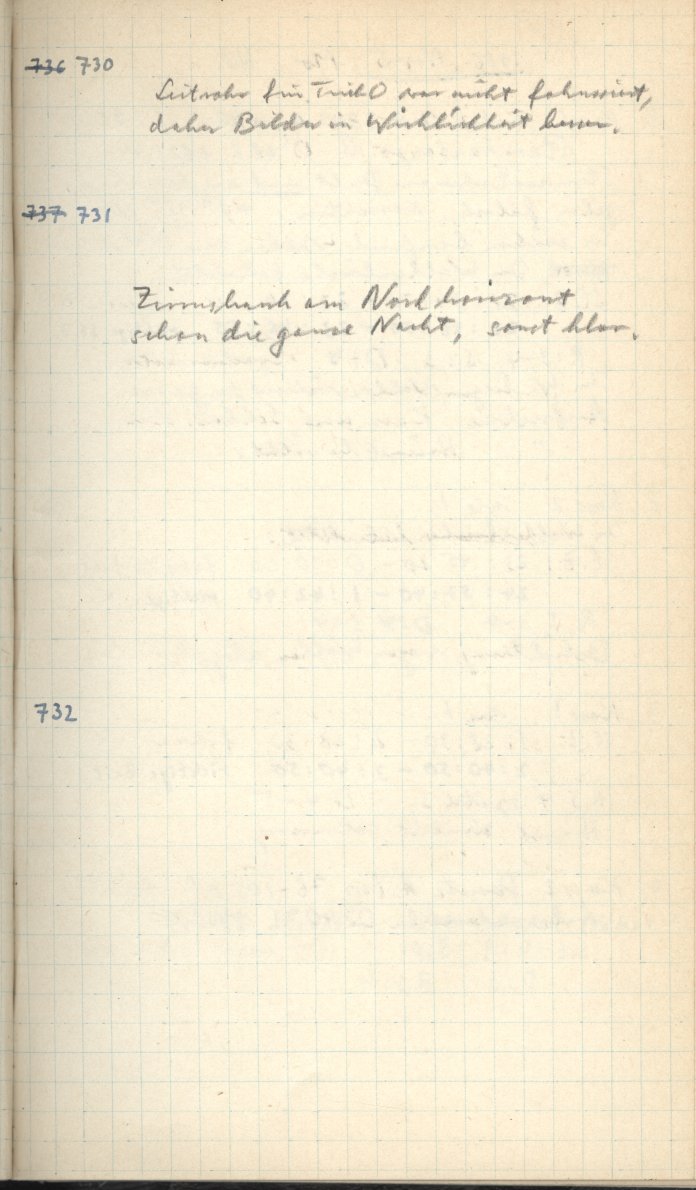 736 730
Leitrohr für Tribl war nicht fokussiert,
daher Bilder in Wirklichkeit besser.
737 731
Zirrusbank am Nordhorizont
schon die ganze Nacht, sonst klar.
732